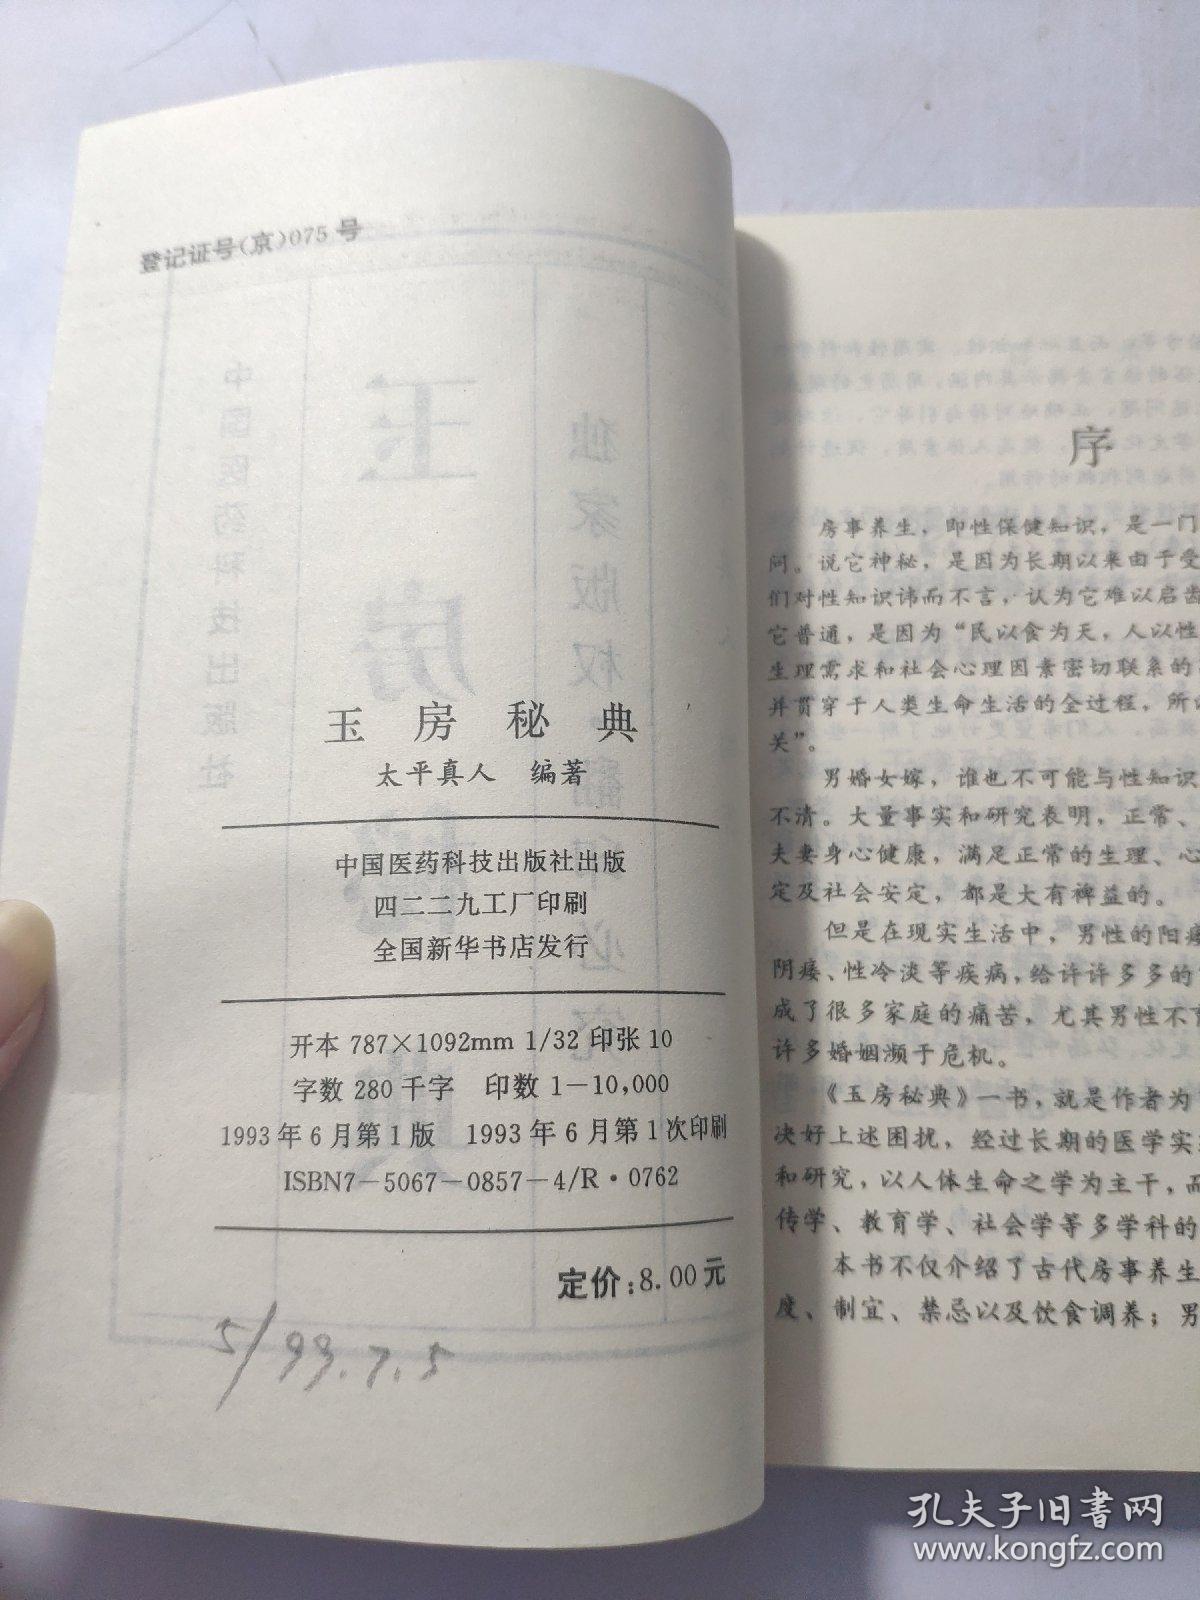 登记证号(京)075号
玉房秘典
太平真人 编著
中国医药科技出版社出版
四二二九工厂印刷
全国新华书店发行
开本 787×1092mm 1/32 印张 10
字数 280 千字 印数 1—10,000
1993 年 6 月第 1 版 1993 年 6 月第 1 次印刷
ISBN7-5067-0857-4/R·0762
定价:8.00元
5/99.7.5
序
房事养生，即性保健知识，是一门
问。说它神秘，是因为长期以来由于受
们对性知识讳而不言，认为它难以启齿
它普通，是因为“民以食为天，人以性
生理需求和社会心理因素密切联系的
并贯穿于人类生命生活的全过程，所以
关”。
男婚女嫁，谁也不可能与性知识
不清。大量事实和研究表明，正常、
夫妻身心健康，满足正常的生理、心
定及社会安定，都是大有裨益的。
但是在现实生活中，男性的阳痿
阴痿、性冷淡等疾病，给许许多多的
成了很多家庭的痛苦，尤其男性不育
许多婚姻濒于危机。
《玉房秘典》一书，就是作者为
决好上述困扰，经过长期的医学实
和研究，以人体生命之学为主干，而
传学、教育学、社会学等多学科的
本书不仅介绍了古代房事养生
度、制宜、禁忌以及饮食调养；男
孔夫子旧书网
www.kongfz.com